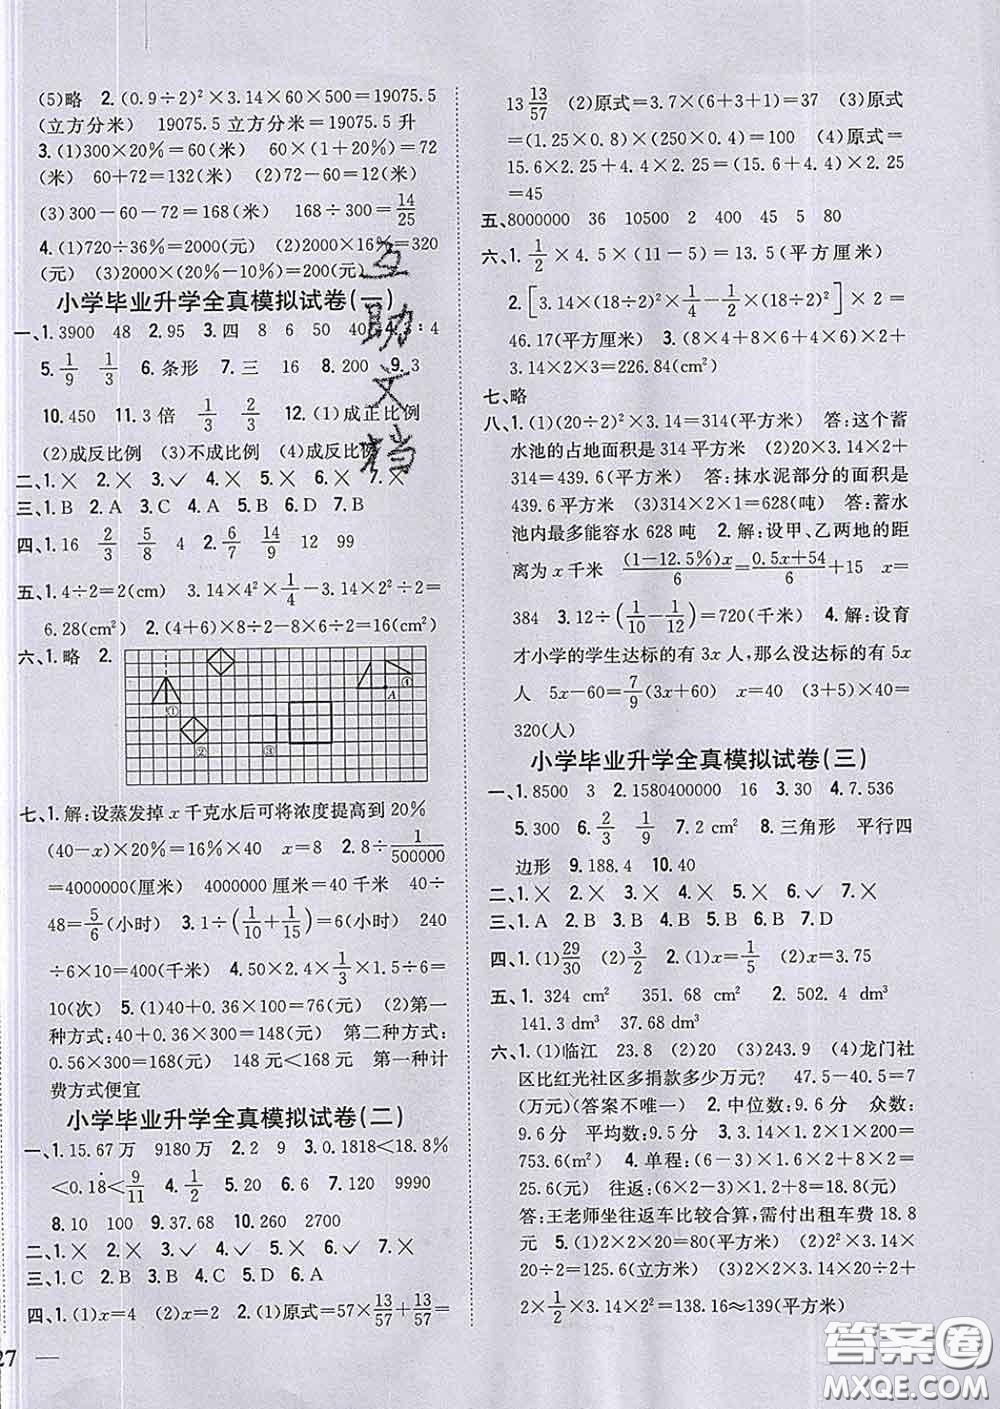 (5)略 2.(0.9÷2)²×3.14×60×500=19075.5
(立方分米) 19075.5立方分米=19075.5升
3.(1)300×20%=60(米) 60×(1+20%)=72
(米) 60+72=132(米) (2)72-60=12(米)
(3)300-60-72=168(米) 168÷300=14/25
4.(1)720÷36%=2000(元) (2)2000×16%=320
(元) (3)2000×(20%-10%)=200(元)
小学毕业升学全真模拟试卷(一)
一、1.3900 48 2.95 3.四 8 6 50 40 4.3∶4
5.1/9 1/3 6.条形 7.三 16 8.200 9.3
10.450 11.3倍 1/3 2/3 12.(1)成正比例
(2)成反比例 (3)不成比例 (4)成反比例
二、1.× 2.× 3.✓ 4.× 5.× 6.× 7.×
三、1.B 2.A 3.C 4.A 5.C 6.D 7.B
四、1.16 2/3 5/8 4 2.6/7 14/9 12 99
五、1.4÷2=2(cm) 3.14×4²×1/4-3.14×2²÷2=
6.28(cm²) 2.(4+6)×8÷2-8×6÷2=16(cm²)
六、1.略 2.
① ② ③ A ①
七、1.解:设蒸发掉x千克水后可将浓度提高到20%
(40-x)×20%=16%×40 x=8 2.8÷1/500000
=4000000(厘米) 4000000厘米=40千米 40÷
48=5/6(小时) 3.1÷(1/10+1/15)=6(小时) 240
÷6×10=400(千米) 4.50×2×1/3×1.5÷6=
10(次) 5.(1)40+0.36×100=76(元) (2)第一
种方式:40+0.36×300=148(元) 第二种方式:
0.56×300=168(元) 148元<168元 第一种计
费方式便宜
小学毕业升学全真模拟试卷(二)
一、1.15.67万 9180万 2.2 9 3.0.1818<18.8%
<0.18<9/11 4.1/2 5.20 6.6 7.120 9990
8.10 100 9.37.68 10.260 2700
二、1.× 2.× 3.✓ 4.✓ 5.✓ 6.✓ 7.×
三、1.C 2.A 3.B 4.C 5.D 6.A
四、1.(1)x=4 (2)x=2 2.(1)原式=57×13/57+13/57=
27
13 13/57 (2)原式=3.7×(6+3+1)=37 (3)原式
=(1.25×0.8)×(250×0.4)=100 (4)原式=
15.6×2.25+4.4×2.25=(15.6+4.4)×2.25
=45
五、8000000 36 10500 2 400 45 5 80
六、1.1/2×4.5×(11-5)=13.5(平方厘米)
2.[3.14×(18÷2)²×1/4-1/2×(18÷2)²]×2=
46.17(平方厘米) 3.(8×4+8×6+4×6)×2+
3.14×2×3=226.84(cm²)
七、略
八、1.(1)(20÷2)²×3.14=314(平方米) 答:这个蓄
水池的占地面积是314平方米 (2)20×3.14×2+
314=439.6(平方米) 答:抹水泥部分的面积是
439.6平方米 (3)314×2×1=628(吨) 答:蓄水
池内最多能容水628吨 2.解:设甲、乙两地的距
离为x千米 (1-12.5%)x/6=0.5x+54/6+15 x=
384 3.12÷(1/10-1/12)=720(千米) 4.解:设育
才小学的学生达标的有3x人,那么没达标的有5x
人 5x-60=7/9(3x+60) x=40 (3+5)×40=
320(人)
小学毕业升学全真模拟试卷(三)
一、1.8500 3 2.1580400000 16 3.30 4.7.536
5.300 6.2/3 1/9 7.2cm² 8.三角形 平行四
边形 9.188.4 10.40
二、1.× 2.× 3.× 4.× 5.× 6.✓ 7.×
三、1.A 2.B 3.B 4.C 5.B 6.B 7.D
四、1.(1)29/30 (2)3/2 2.(1)x=1/5 (2)x=3.75
五、1.324 cm² 351.68 cm² 2.502.4 dm³
141.3 dm³ 37.68 dm³
六、1.(1)临江 23.8 (2)20 (3)243.9 (4)龙门社
区比红光社区多捐款多少万元? 47.5-40.5=7
(万元)(答案不唯一) 2.中位数:9.6分 众数:
9.6分 平均数:9.5分 3.3.14×1.2×1×200=
753.6(m²) 4.单程:(6-3)×1.6×2+8×2=
25.6(元) 往返:(6×2-3)×1.2+8=18.8(元)
答:王老师坐往返车比较合算,需付出租车费18.8
元 5.(1)2×2×20=80(平方米) (2)2²×3.14×
20÷2=125.6(立方米) (3)2×2×3.14×20÷2+
2×1/2×3.14×2²=138.16≈139(平方米)
互助文档
答案圈
MXQE.COM